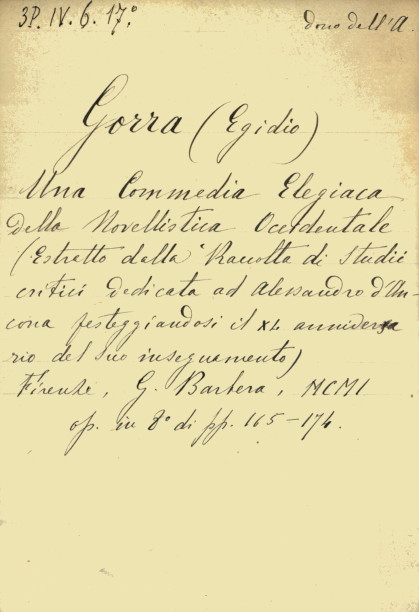 3P. IV. 6. 17.° dono dell'A.
Gorra (Egidio)
Una Commedia Elegiaca
della Novellistica Occidentale
(Estratto dalla Raccolta di Studii
critici dedicata ad Alessandro d'An-
cona festeggiandosi il XL anniversa
rio del suo insegnamento)
Firenze, G. Barbera, MCMI
op. in 8° di pp. 165-174.